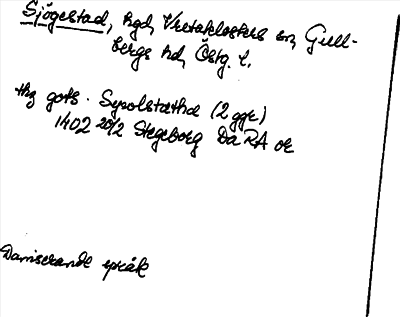 Sjögestad, hgd, Vretaklosters sn, Gull-
bergs hd, Östg. l.
thg gots. Syolstatha (2 ggr)
1402 20/2 Stegeborg DaRA or
Daniserande språk